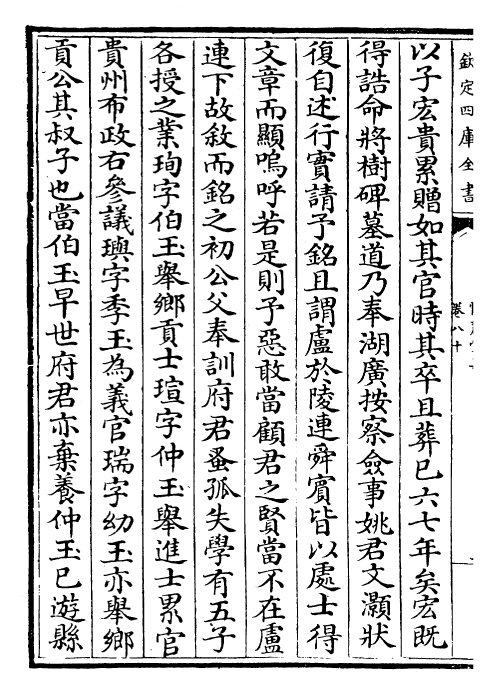 欽定四庫全書
卷八十
以子宏貴累贈如其官時其卒且葬已六七年矣宏既
得誥命將樹碑墓道乃奉湖廣按察僉事姚君文灝狀
復自述行實請予銘且謂盧於陵連舜賓皆以處士得
文章而顯嗚呼若是則予惡敢當顧君之賢當不在盧
連下故敘而銘之初公父奉訓府君蚤孤失學有五子
各授之業珣字伯玉舉鄉貢士瑄字仲玉舉進士累官
貴州布政右參議璵字季玉為義官瑞字幼玉亦舉鄉
貢公其叔子也當伯玉早世府君亦棄養仲玉已遊縣